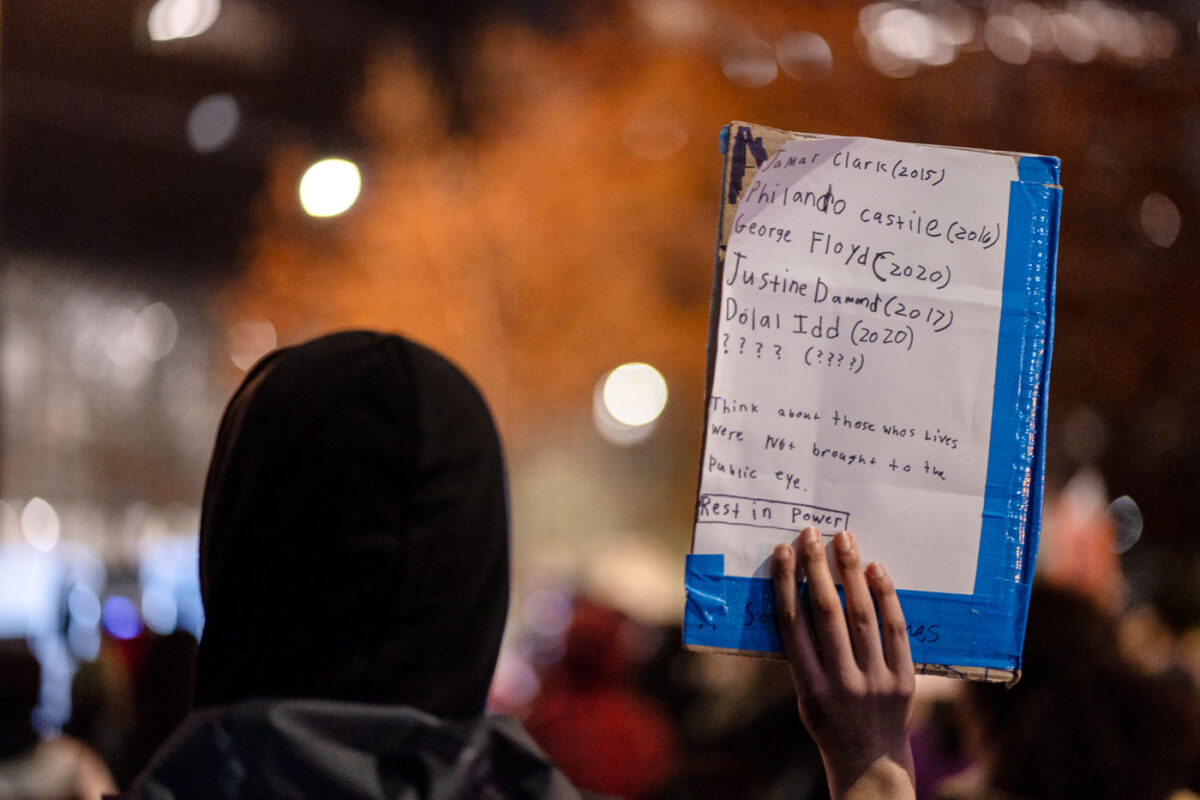 Jamar Clark (2015)
Philando Castile (2016)
George Floyd (2020)
Justine Damond (2017)
Dolal Idd (2020)
???? (????)
Think about those whos lives
were not brought to the
public eye.
Rest in Power